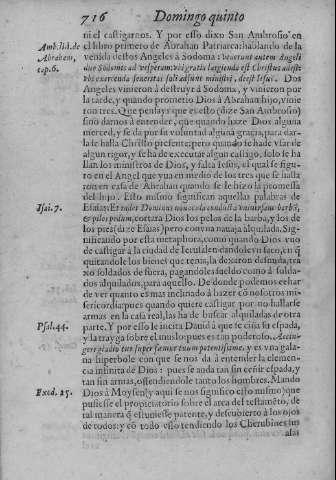 716 Domingo quinto
ni el castigarnos. Y por esso dixo San Ambrosio en
Amb. li. 1. de
Abraham,
cap. 6.
el libro primero de Abrahan Patriarca: hablando de la
venida destos Angeles à Sodoma: venerunt autem Angeli
duæ Sodomis ad vesperam: vbi gratia largienda est Christus adest:
vbi exercenda seueritas soli adsunt ministri, deest Iesus. Dos
Angeles vinieron à destruyr à Sodoma, y vinieron por
la tarde, y quando prometio Dios à Abrahan hijo, vinie
ron tres. Que pensays que es esto (dize San Ambrosio)
sino darnos à entender, que quando haze Dios alguna
merced, y se da por su voluntad alguna gracia, para dar-
la se halla Christo presente: pero quando se hade vsar de
algun rigor, y se ha de executar algun castigo, solo se ha
llan los ministros de Dios, y falta Iesus, al qual se signi-
co en el Angel que yua en medio de los tres que se halla
ron en casa de Abrahan quando se le hizo la promessa
del hijo. Esto mismo significan aquellas palabras de
Isai. 7.
Esaias: Et radet Dominus nouacula conducta vniuersam barbã,
& pilos pedum, cortara Dios los pelos de la barba, y los de
los pies (dize Esaias) pero con vna nauaja alquilada. Sig-
nificando por esta metaphora, como quando Dios vuo
de castigar à la ciudad de Ierusalen dandole vn saco, en q̃
quitandole los bienes que tenia, la dexaron desnuda, tra
xo soldados de fuera, pagandoles sueldo como à solda-
dos alquilados, para aquello. De donde podemos echar
de ver quanto es mas inclinado à hazer cõ nosotros mi-
sericordia: pues quando quiere castigar por no hallarse
armas en la casa real, las ha de buscar alquiladas de otra
Psal. 44.
parte. Y por esso le incita Dauid à que se ciña su espada,
y la trayga sobre el muslo: pues es tan poderoso. Accin-
gere gladio tuo super femur tuum potentissime. y es vna gala-
na hiperbole con que se nos da à entender la clemen-
cia infinita de Dios: pues se anda tan sin ceñir espada, y
tan sin armas, offendiendole tanto los hombres. Mando
Exod. 25.
Dios à Moysen (y aqui se nos significo esso mismo) que
pusiesse el propiciatorio sobre el arca del testamẽto, de
tal manera q̃ estuuiesse patente, y descubierto à los ojos
de todos: y cõ todo esso tendiendo los Cherubines sus
alas